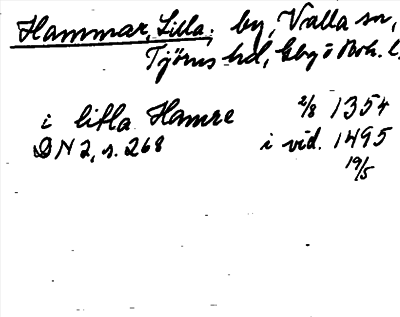 Hammar, Lilla, by, Valla sn,
Tjörns hd, Gbg o Boh. l.
i litla Hamre 2/8 1354
DN 2, s. 268 i vid. 1495
19/5